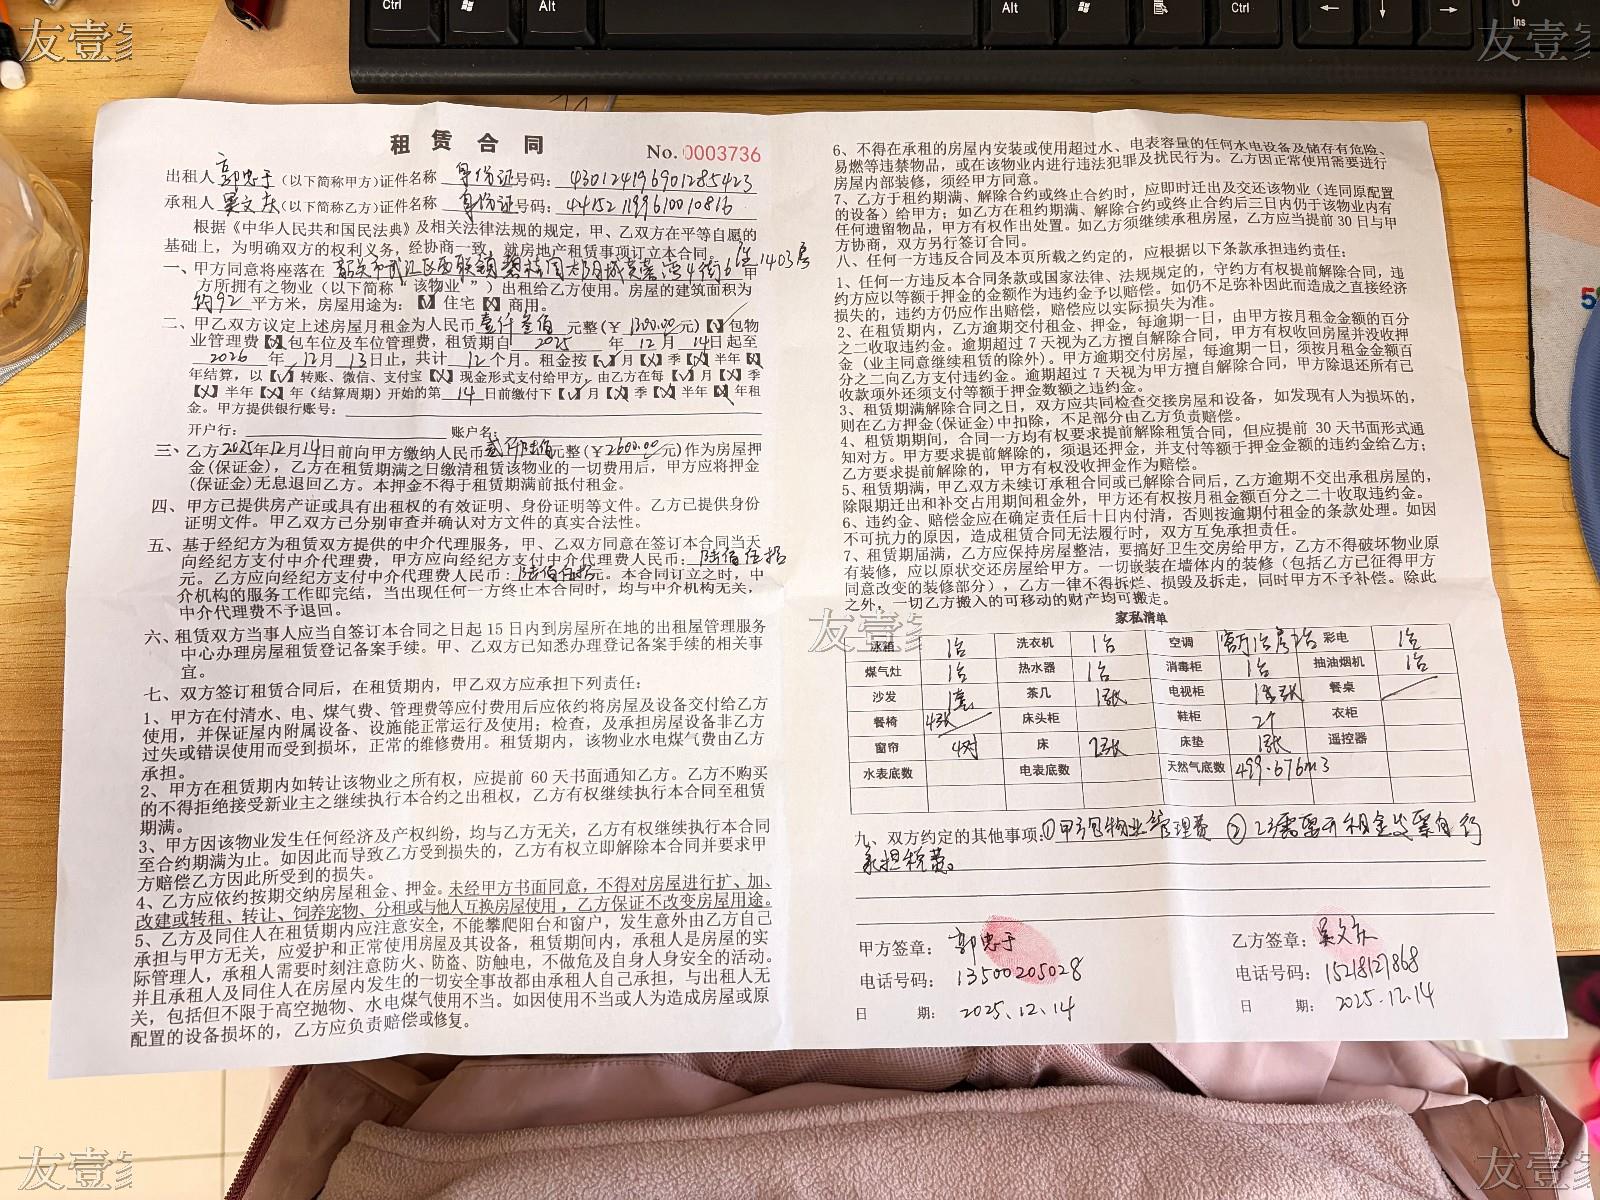 友壹家
友壹家
Ctrl
Alt
Alt
Ctrl
Ins
租赁合同
No. 0003736
出租人 郭忠于 (以下简称甲方)证件名称 身份证号码: 430124196901285423
承租人 吴文庆 (以下简称乙方)证件名称 身份证号码: 441521199610010816
根据《中华人民共和国民法典》及相关法律法规的规定，甲、乙双方在平等自愿的
基础上，为明确双方的权利义务，经协商一致，就房地产租赁事项订立本合同。
一、甲方同意将座落在 韶关市武江区西联镇 碧桂园太阳城芙蓉湾4街6 1403房 甲
方所拥有之物业（以下简称“该物业”）出租给乙方使用。房屋的建筑面积为
约92 平方米，房屋用途为：【√】住宅【X】商用。
二、甲乙双方议定上述房屋月租金为人民币 壹仟叁佰 元整(￥1300.00元)【√】包物
业管理费【X】包车位及车位管理费，租赁期自 2025 年 12 月 14日起至
2026 年 12月 13日止，共计 12个月。租金按【√】月【X】季【X】半年【X】
年结算，以【√】转账、微信、支付宝【X】现金形式支付给甲方，由乙方在每【√】月【X】季
【X】半年【X】年（结算周期）开始的第 14日前缴付下【√】月【X】季【X】半年【X】年租
金。甲方提供银行账号：
开户行： 账户名：
三、乙方2025年12月14日前向甲方缴纳人民币贰仟陆佰元整(￥2600.00元)作为房屋押
金(保证金)，乙方在租赁期满之日缴清租赁该物业的一切费用后，甲方应将押金
(保证金)无息退回乙方。本押金不得于租赁期满前抵付租金。
四、甲方已提供房产证或具有出租权的有效证明、身份证明等文件。乙方已提供身份
证明文件。甲乙双方已分别审查并确认对方文件的真实合法性。
五、基于经纪方为租赁双方提供的中介代理服务，甲、乙双方同意在签订本合同当天
向经纪方支付中介代理费，甲方应向经纪方支付中介代理费人民币：陆佰伍拾
元。乙方应向经纪方支付中介代理费人民币：陆佰伍拾元。本合同订立之时，中
介机构的服务工作即完结，当出现任何一方终止本合同时，均与中介机构无关，
中介代理费不予退回。
六、租赁双方当事人应当自签订本合同之日起 15 日内到房屋所在地的出租屋管理服务
中心办理房屋租赁登记备案手续。甲、乙双方已知悉办理登记备案手续的相关事
宜。
七、双方签订租赁合同后，在租赁期内，甲乙双方应承担下列责任：
1、甲方在付清水、电、煤气费、管理费等应付费用后应依约将房屋及设备交付给乙方
使用，并保证屋内附属设备、设施能正常运行及使用；检查，及承担房屋设备非乙方
过失或错误使用而受到损坏，正常的维修费用。租赁期内，该物业水电煤气费由乙方
承担。
2、甲方在租赁期内如转让该物业之所有权，应提前 60 天书面通知乙方。乙方不购买
的不得拒绝接受新业主之继续执行本合约之出租权，乙方有权继续执行本合同至租赁
期满。
3、甲方因该物业发生任何经济及产权纠纷，均与乙方无关，乙方有权继续执行本合同
至合约期满为止。如因此而导致乙方受到损失的，乙方有权立即解除本合同并要求甲
方赔偿乙方因此所受到的损失。
4、乙方应依约按期交纳房屋租金、押金。未经甲方书面同意，不得对房屋进行扩、加、
改建或转租、转让、饲养宠物、分租或与他人互换房屋使用，乙方保证不改变房屋用途。
5、乙方及同住人在租赁期内应注意安全，不能攀爬阳台和窗户，发生意外由乙方自己
承担与甲方无关，应爱护和正常使用房屋及其设备，租赁期间内，承租人是房屋的实
际管理人，承租人需要时刻注意防火、防盗、防触电，不做危及自身人身安全的活动。
并且承租人及同住人在房屋内发生的一切安全事故都由承租人自己承担，与出租人无
关，包括但不限于高空抛物、水电煤气使用不当。如因使用不当或人为造成房屋或原
配置的设备损坏的，乙方应负责赔偿或修复。
6、不得在承租的房屋内安装或使用超过水、电表容量的任何水电设备及储存有危险、
易燃等违禁物品，或在该物业内进行违法犯罪及扰民行为。乙方因正常使用需要进行
房屋内部装修，须经甲方同意。
7、乙方于租约期满、解除合约或终止合约时，应即时迁出及交还该物业（连同原配置
的设备）给甲方；如乙方在租约期满、解除合约或终止合约后三日内仍于该物业内有
任何遗留物品，甲方有权作出处置。如乙方须继续承租房屋，乙方应当提前 30 日与甲
方协商，双方另行签订合同。
八、任何一方违反合同及本页所载之约定的，应根据以下条款承担违约责任：
1、任何一方违反本合同条款或国家法律、法规规定的，守约方有权提前解除合同，违
约方应以等额于押金的金额作为违约金予以赔偿。如仍不足弥补因此而造成之直接经济
损失的，违约方仍应作出赔偿，赔偿应以实际损失为准。
2、在租赁期内，乙方逾期交付租金、押金，每逾期一日，由甲方按月租金金额的百分
之二收取违约金。逾期超过 7 天视为乙方擅自解除合同，甲方有权收回房屋并没收押
金（业主同意继续租赁的除外）。甲方逾期交付房屋，每逾期一日，须按月租金金额百
分之二向乙方支付违约金。逾期超过 7 天视为甲方擅自解除合同，甲方除退还所有已
收款项外还须支付等额于押金数额之违约金。
3、租赁期满解除合同之日，双方应共同检查交接房屋和设备，如发现有人为损坏的，
则在乙方押金(保证金)中扣除，不足部分由乙方负责赔偿。
4、租赁期期间，合同一方均有权要求提前解除租赁合同，但应提前 30 天书面形式通
知对方。甲方要求提前解除的，须退还押金，并支付等额于押金金额的违约金给乙方；
乙方要求提前解除的，甲方有权没收押金作为赔偿。
5、租赁期满，甲乙双方未续订承租合同或已解除合同后，乙方逾期不交出承租房屋的，
除限期迁出和补交占用期间租金外，甲方还有权按月租金额百分之二十收取违约金。
6、违约金、赔偿金应在确定责任后十日内付清，否则按逾期付租金的条款处理。如因
不可抗力的原因，造成租赁合同无法履行时，双方互免承担责任。
7、租赁期届满，乙方应保持房屋整洁，要搞好卫生交房给甲方，乙方不得破坏物业原
有装修，应以原状交还房屋给甲方。一切嵌装在墙体内的装修（包括乙方已征得甲方
同意改变的装修部分），乙方一律不得拆烂、损毁及拆走，同时甲方不予补偿。除此
之外，一切乙方搬入的可移动的财产均可搬走。
友壹家
家私清单
冰箱 1台 洗衣机 1台 空调 彩电 1台
煤气灶 1台 热水器 1台 消毒柜 1台 抽油烟机 1台
沙发 1套 茶几 1张 电视柜 1张 餐桌
餐椅 4张 床头柜 鞋柜 2个 衣柜
窗帘 4对 床 2张 床垫 1张 遥控器
水表底数 电表底数 天然气底数 499.676m3
九、双方约定的其他事项：①甲方包物业管理费 ②乙方需要开租金发票自行
承担税费。
甲方签章： 郭忠于
电话号码： 13500205028
日 期： 2025.12.14
乙方签章： 吴文庆
电话号码： 15218121868
日 期： 2025.12.14
友壹家
友壹家